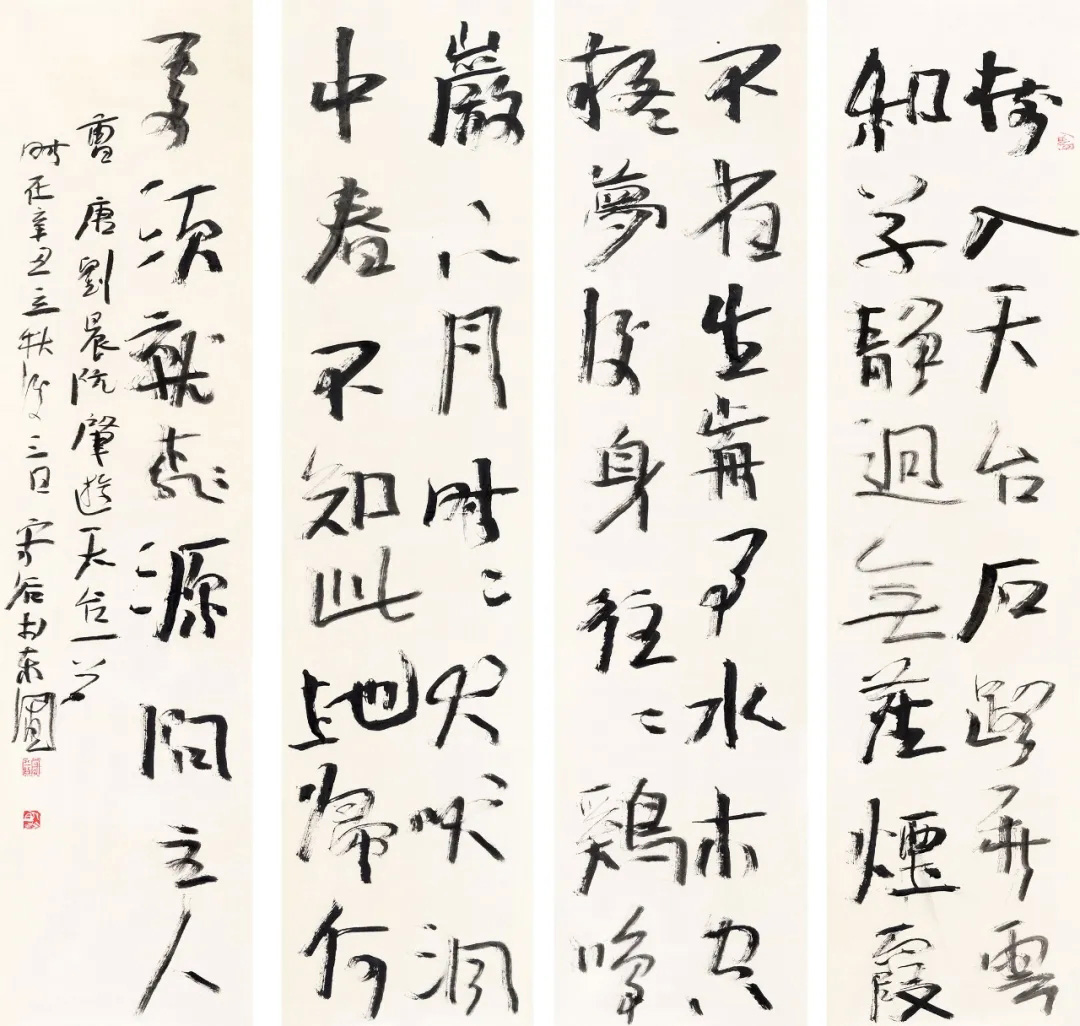 樹入天台石路新雲
和草靜迥無塵煙霞
不省生前事水木空
疑夢後身往〻鷄鳴
巖下月時〻犬吠洞
中春不知此地歸何
處須就桃源問主人
曹唐劉晨阮肇遊天台一首
時在辛丑立秋後三日石於東園